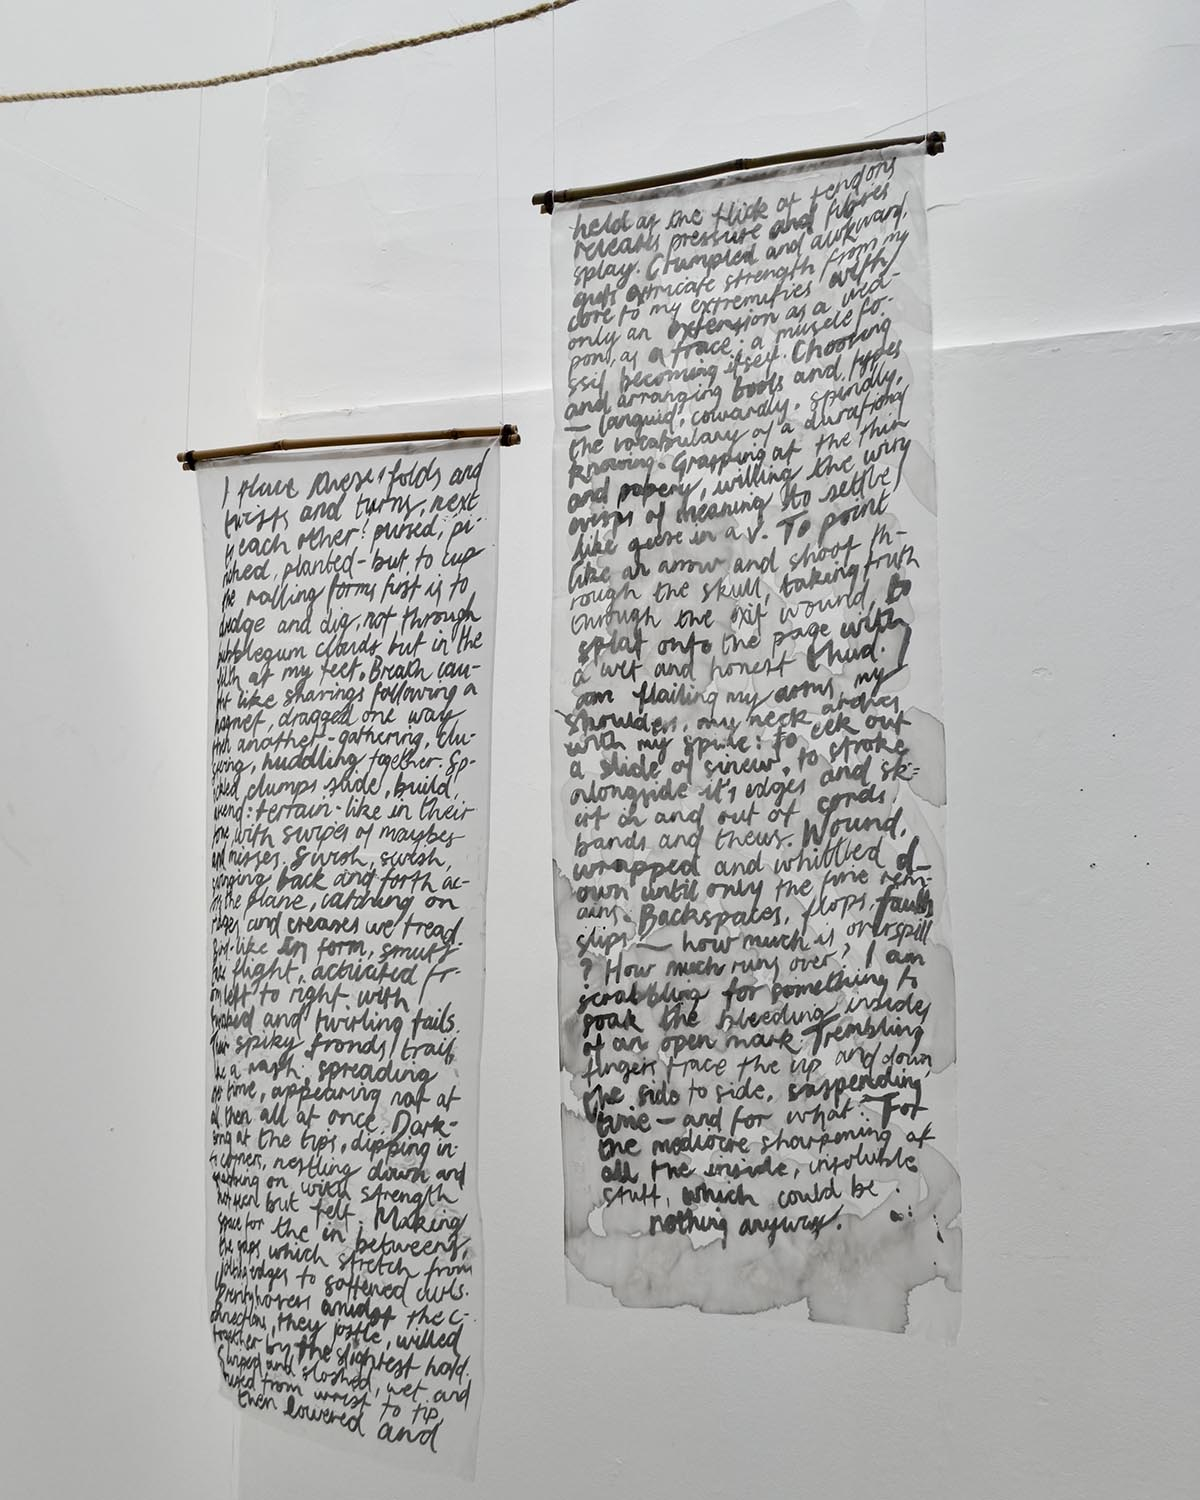 I place these folds and
twists and turns, next
each other: pursed, pi-
nched, planted - but to cup
the rolling forms first is to
dredge and dig, not through
bubblegum clouds but in the
filth at my feet. Breath cau-
ght like shavings following a
magnet, dragged one way
then another - gathering, clu-
huddling together. Sp-
clumps slide, build,
terrain-like in their
with swipes of maybes
and misses. Swish, swish,
back and forth ac-
the plane, catching on
ridges and creases we tread
like in form, smutty
flight, activated fr-
om left to right with
and twirling tails.
Their spiky fronds trail
like a rash: spreading
over time, appearing not at
all then all at once. Dark-
at the tips, dipping in
to corners, nestling down and
on with strength
not seen but felt. Making
space for the in betweens,
the gaps which stretch from
edges to softened curls.
hovers amidst the c-
onnections, they jostle, willed
together by the slightest hold.
and sloshed, wet and
from wrist to tip,
then lowered and
held as the flick of tendons
releases pressure and fibres
splay. Crumpled and awkward,
guts extricate strength from my
core to my extremities with
only an extension as a wea-
pon, as a trace: a muscle fo-
ssil becoming itself. Choosing
and arranging bools and types
— languid, cowardly, spindly,
the vocabulary of a durational
knowing. Grasping at the thin
and papery, willing the wiry
wisps of meaning to settle
like geese in a V. To point
like an arrow and shoot th-
rough the skull, taking truth
through the exit wound, to
splat onto the page with
a wet and honest thud. I
am flailing my arms, my
shoulders, my neck arches
with my spine: to eek out
a slide of sinew, to stroke
alongside it's edges and sk-
irt in and out of cords,
bands and thews. Wound,
wrapped and whittled d-
own until only the fine rem-
ains. Backspaces, flops, faults
slips — how much is overspill
? How much runs over? I am
scrabbling for something to
soak the bleeding insides
of an open mark. Trembling
fingers trace the up and down,
the side to side, suspending
time — and for what. For
the mediocre sharpening of
all the inside, insoluble
stuff, which could be
nothing anyway.